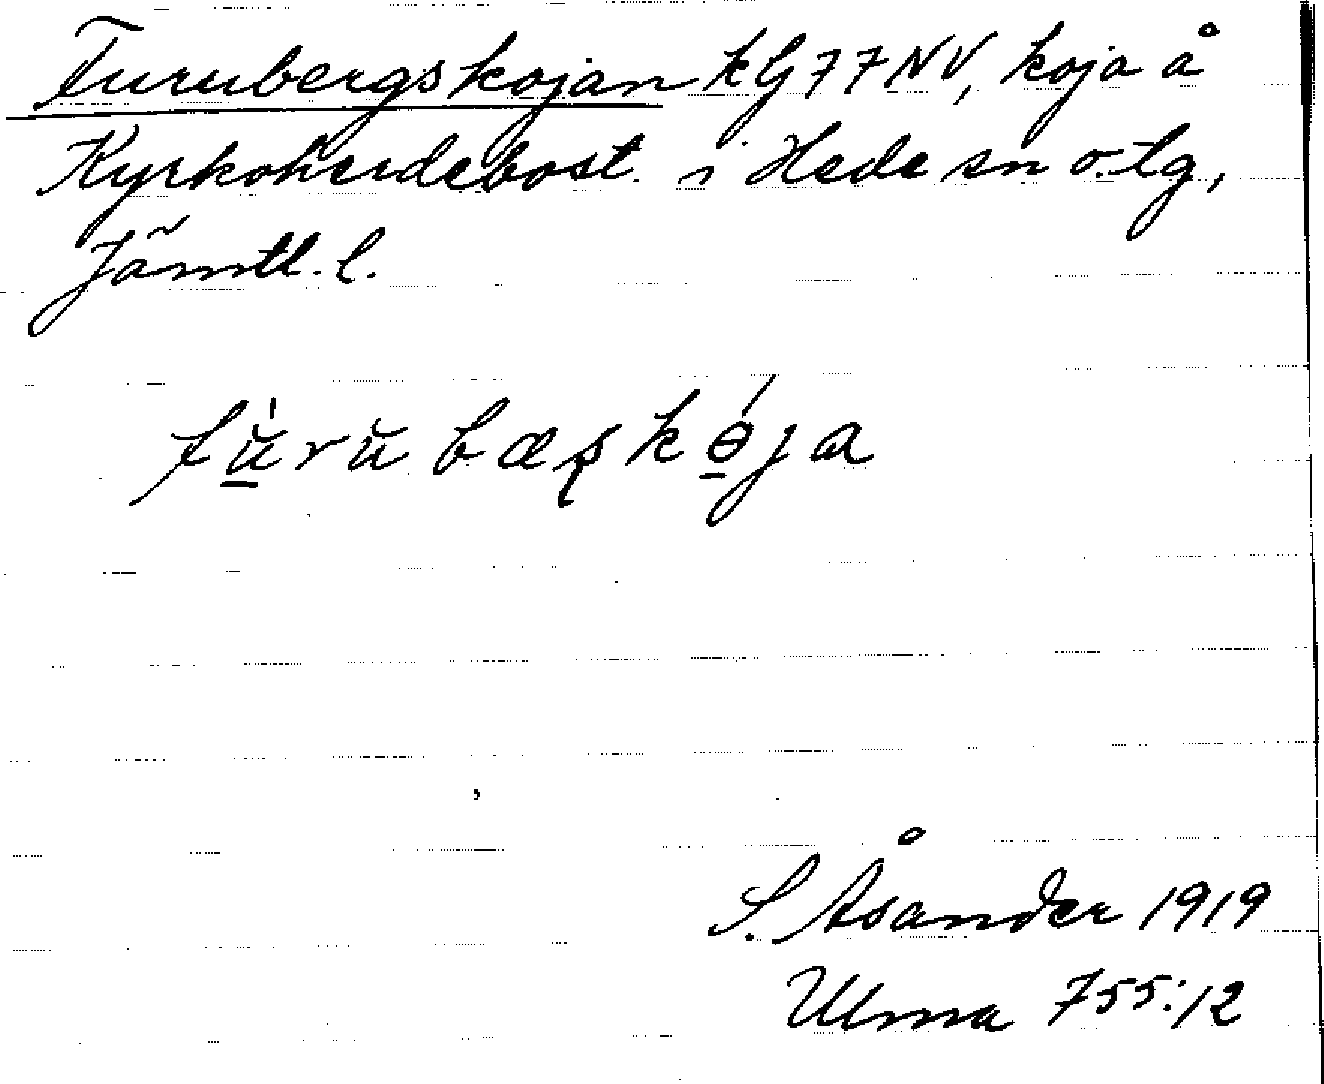 Furubergskojan kG77NV, koja å
Kyrkoherdebost. i Hede sn o. tg,
Jämtl. l.
fŭ̀rŭbæşkɵ́ja
S. Åsander 1919
Ulma 755:12